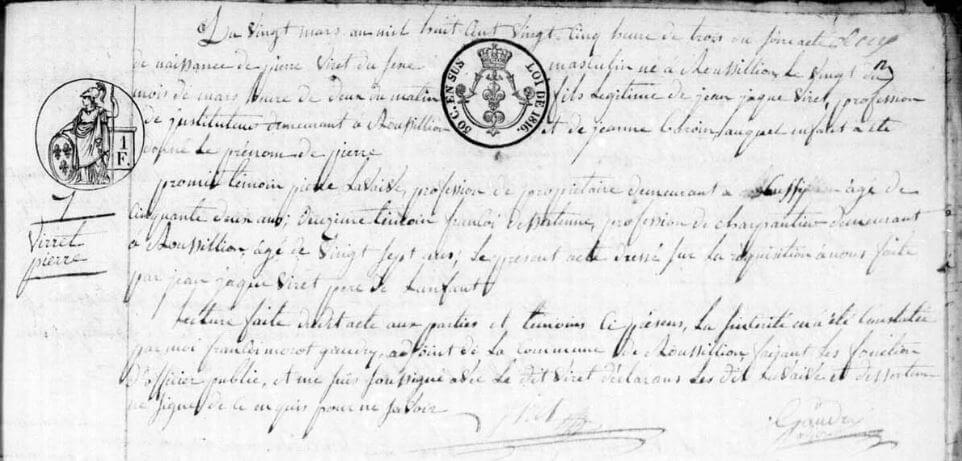 Le Vingt mars an mil huit cent Vingt Cinq heure de trois du soir acte
de naissance de pierre Viret du sexe masculin né à Roussillion Le Vingt du
mois de mars heure de deux du matin fils legitime de jean jaque Viret, profession
de justituteur demeurant à Roussillion et de jeanne auquel enfant a été
donné Le prénom de pierre
50 C. EN SUS
LOI DE 1816.
1 F.
7
Virret
pierre
premier témoin pierre Lavaivre, profession de propriétaire demeurant a âgé de
Cinquante deux ans; Deuzieme temoin françoi dessertenne, profession de charpantier demeurant
à Roussillion, agé de Vingt Sept ans; Le présent acte dressé sur La réquisition à nous faite
par jean jaque Viret pere de Lenfant
Lecture faite dudit acte aux parties et temoins Ci présens, La sinserité en a été Constatée
par moi françoi morot gaudry, adjoint de La Commune de Roussillion, faisant Les fonction
d'officier public, et me suis soussigné avec Le dit Viret déclarans Les dit Lavaivre et dessertenne
ne signer de ce enquis pour ne savoir
Viret
Gaudry